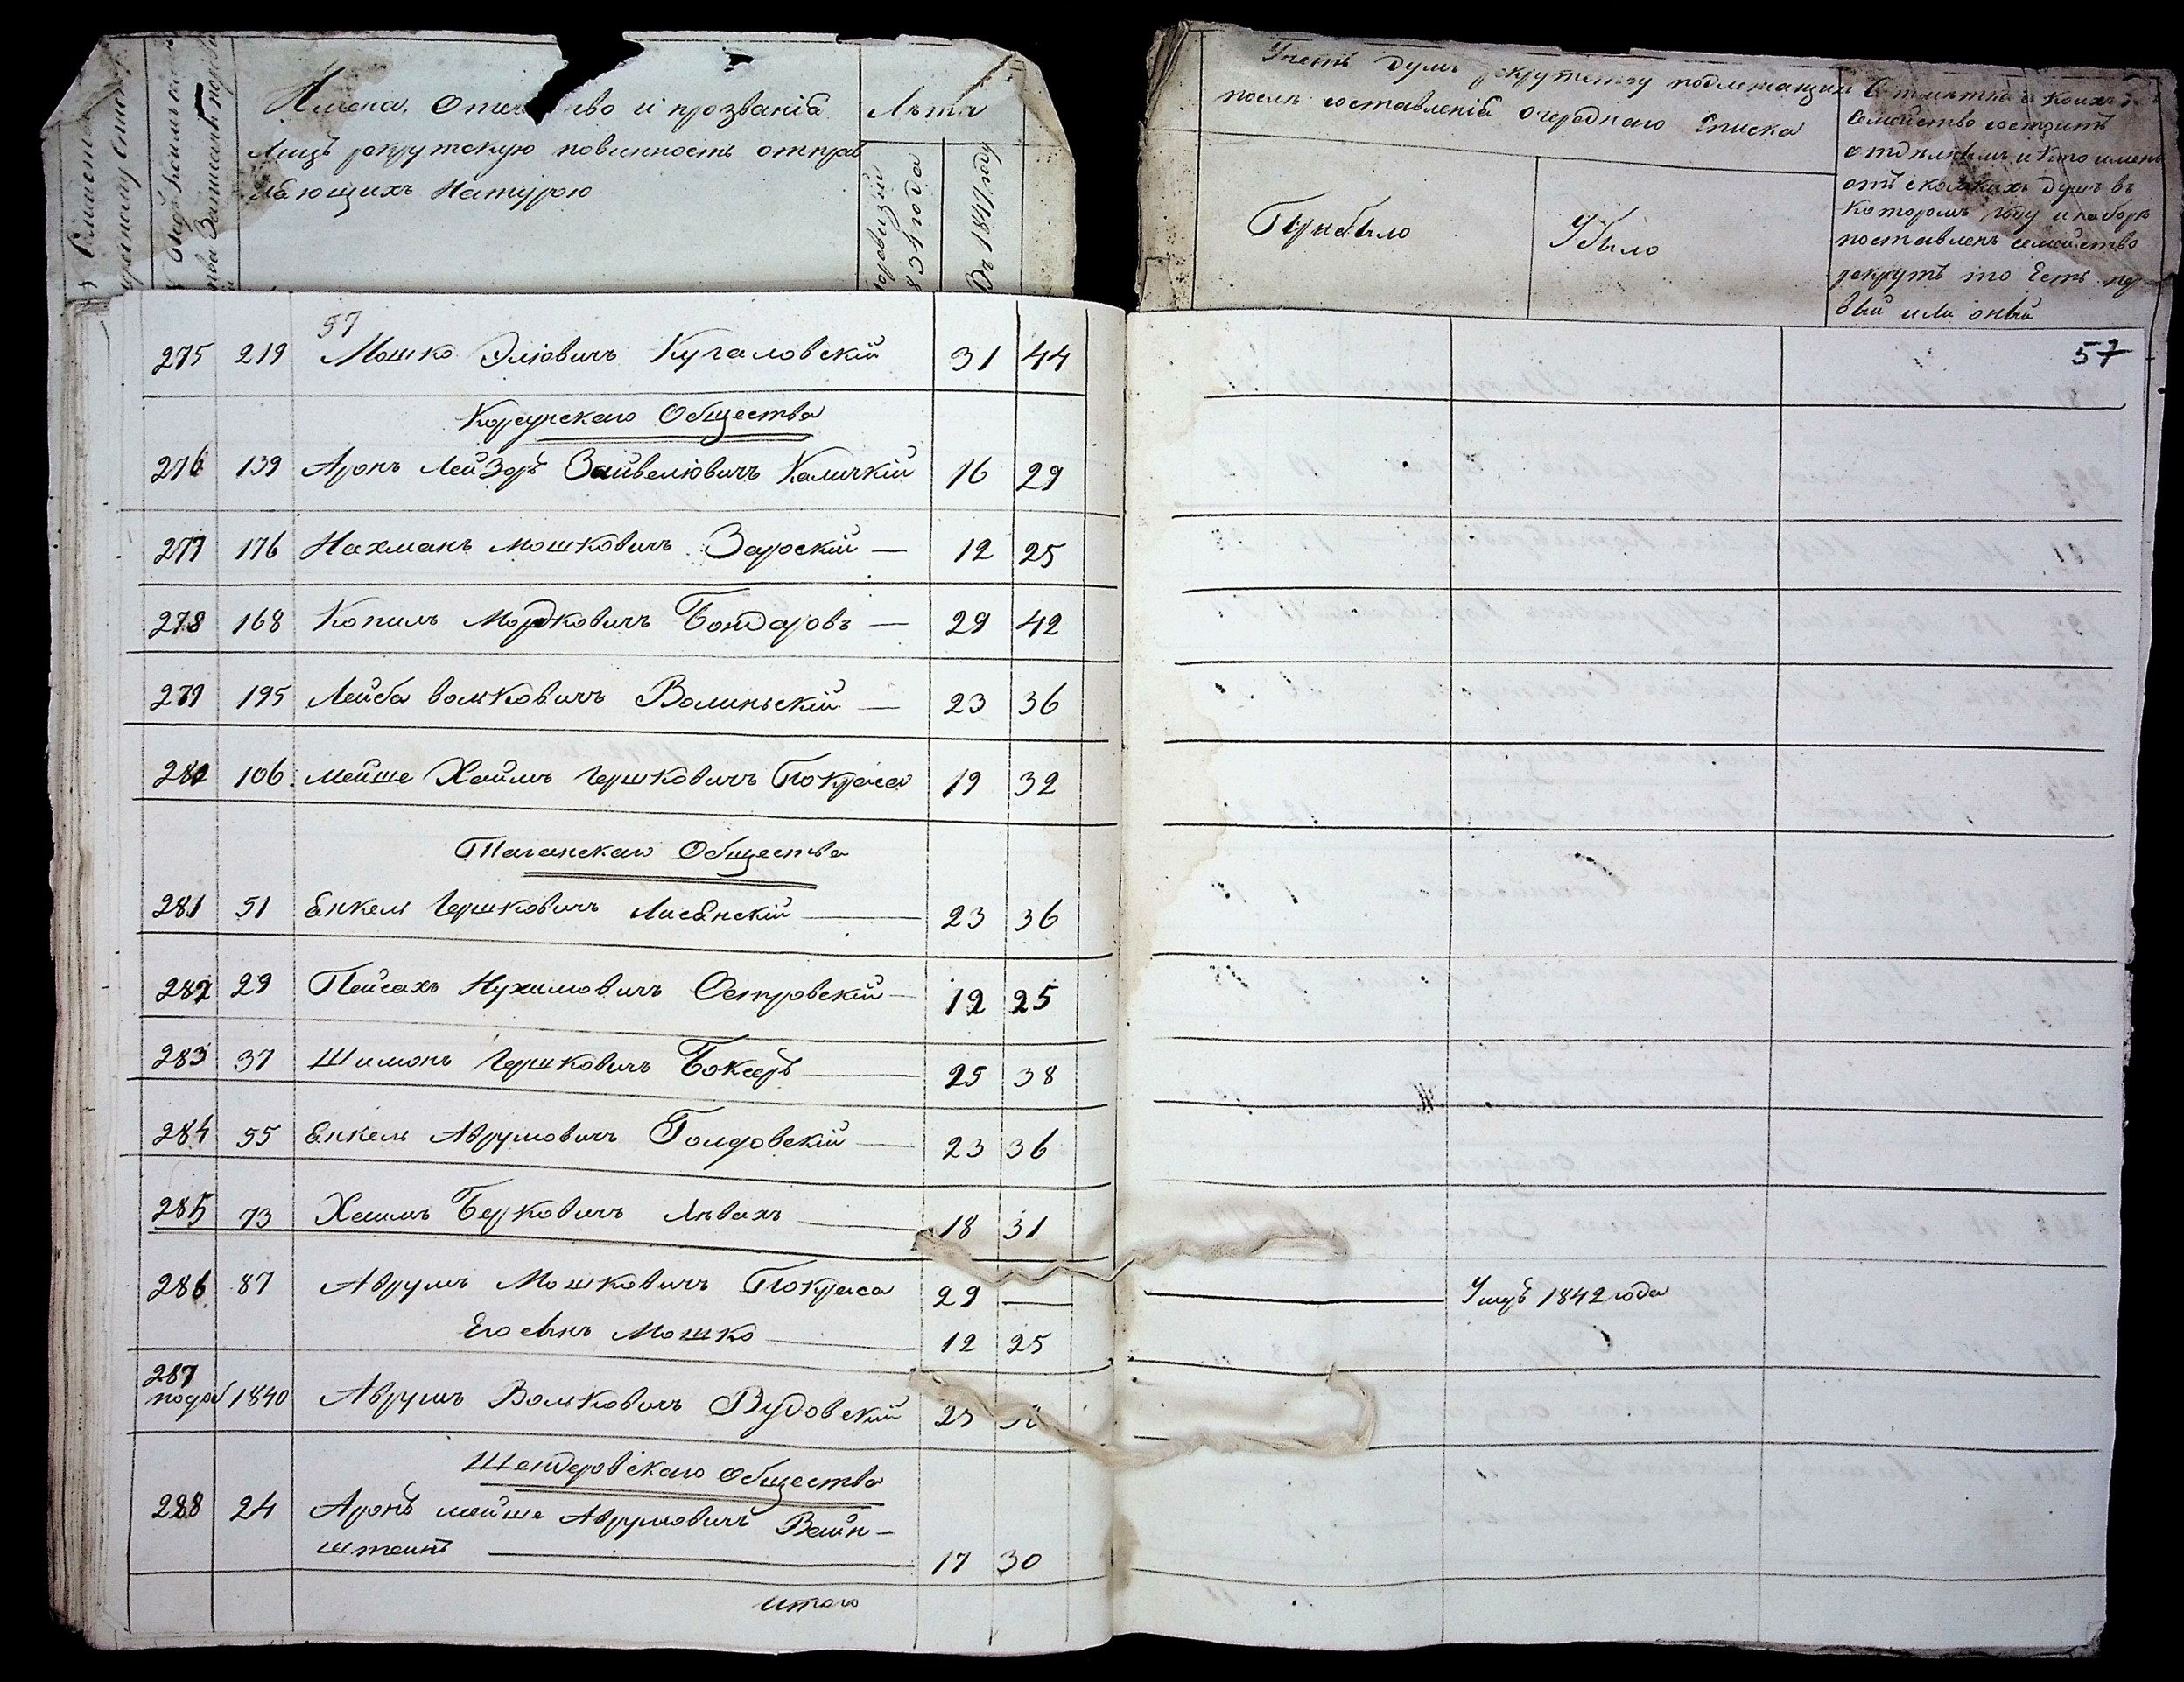 Имена, Отечество и прозванія
Лѣта
Лицъ рекрутскую повинность отправ
ляющихъ Натурою
По ревизіи 1834 года
Въ 1847 году
Учетъ душъ рекрутству подлежащихъ
послѣ составленія Очереднаго Списка
Прибыло
Убыло
Отмѣтка о коихъ
Семейство состоитъ
отъ сколькихъ душъ въ
которомъ году и наборѣ
поставленъ семейство
рекрутъ то Есть
или оный
57
275 219 Мошко Эліовичъ Кугаловскій 31 44
57
Корсунскаго Общества
276 139 Аронъ Лейзоръ Зайвеліовичъ Каличкій 16 29
277 176 Нахманъ Мошковичъ Зарскій — 12 25
278 168 Копиль Мордковичъ Бондаровъ — 29 42
279 195 Лейба Волковичъ Волиньскій — 23 36
280 106 Мейше Хаимъ Гершковичъ Покраса 19 32
Таганскаго Общества
281 51 Енкель Гершковичъ Лисянскій — 23 36
282 29 Пейсахъ Нухимовичъ Островскій — 12 25
283 37 Шимонъ Гершковичъ Боксеръ — 25 38
284 55 Енкель Аврумовичъ Голдовскій — 23 36
285 73 Хаимъ Берковичъ Лѣвахъ — 18 31
286 87 Аврумъ Мошковичъ Покраса 29 — Умеръ 1842 года
Его сынъ Мошко — 12 25
287
1840 Аврумъ Волковичъ Рудовскій 25
Шендеровскаго Общества
288 24 Аронъ Мейше Аврумовичъ Вейн-
штейнъ — 17 30
Итого